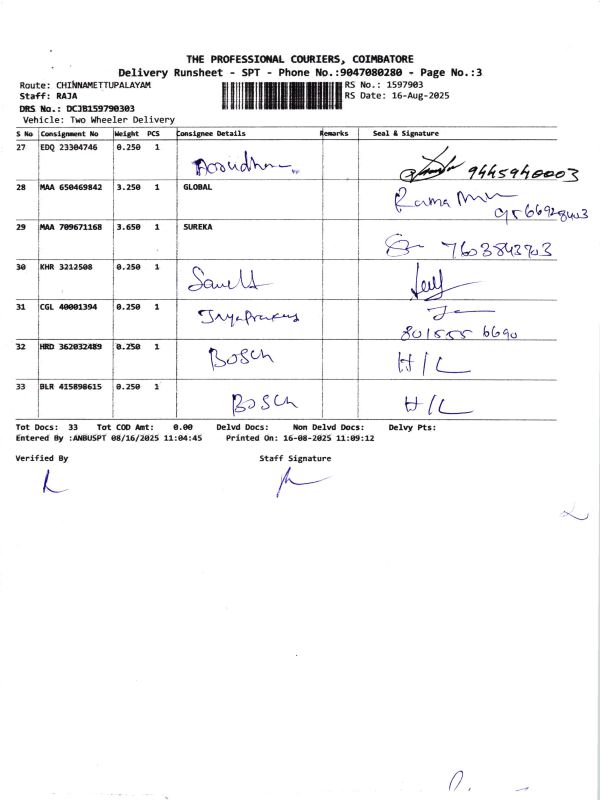 THE PROFESSIONAL COURIERS, COIMBATORE
Delivery Runsheet - SPT - Phone No.:9047080280 - Page No.:3
Route: CHINNAMETTUPALAYAM RS No.: 1597903
Staff: RAJA RS Date: 16-Aug-2025
DRS No.: DCJB159790303
Vehicle: Two Wheeler Delivery
S No Consignment No Weight PCS Consignee Details Remarks Seal & Signature
27 EDQ 23304746 0.250 1
9445940003
28 MAA 650469842 3.250 1 GLOBAL
Rama
29 MAA 709671168 3.650 1 SUREKA
7603843703
30 KHR 3212508 0.250 1
31 CGL 40001394 0.250 1
JayaPrakas
801555 6690
32 HRD 362032489 0.250 1
BOSCH H/L
33 BLR 415898615 0.250 1
BOSCH H/L
Tot Docs: 33 Tot COD Amt: 0.00 Delvd Docs: Non Delvd Docs: Delvy Pts:
Entered By :ANBUSPT 08/16/2025 11:04:45 Printed On: 16-08-2025 11:09:12
Verified By Staff Signature